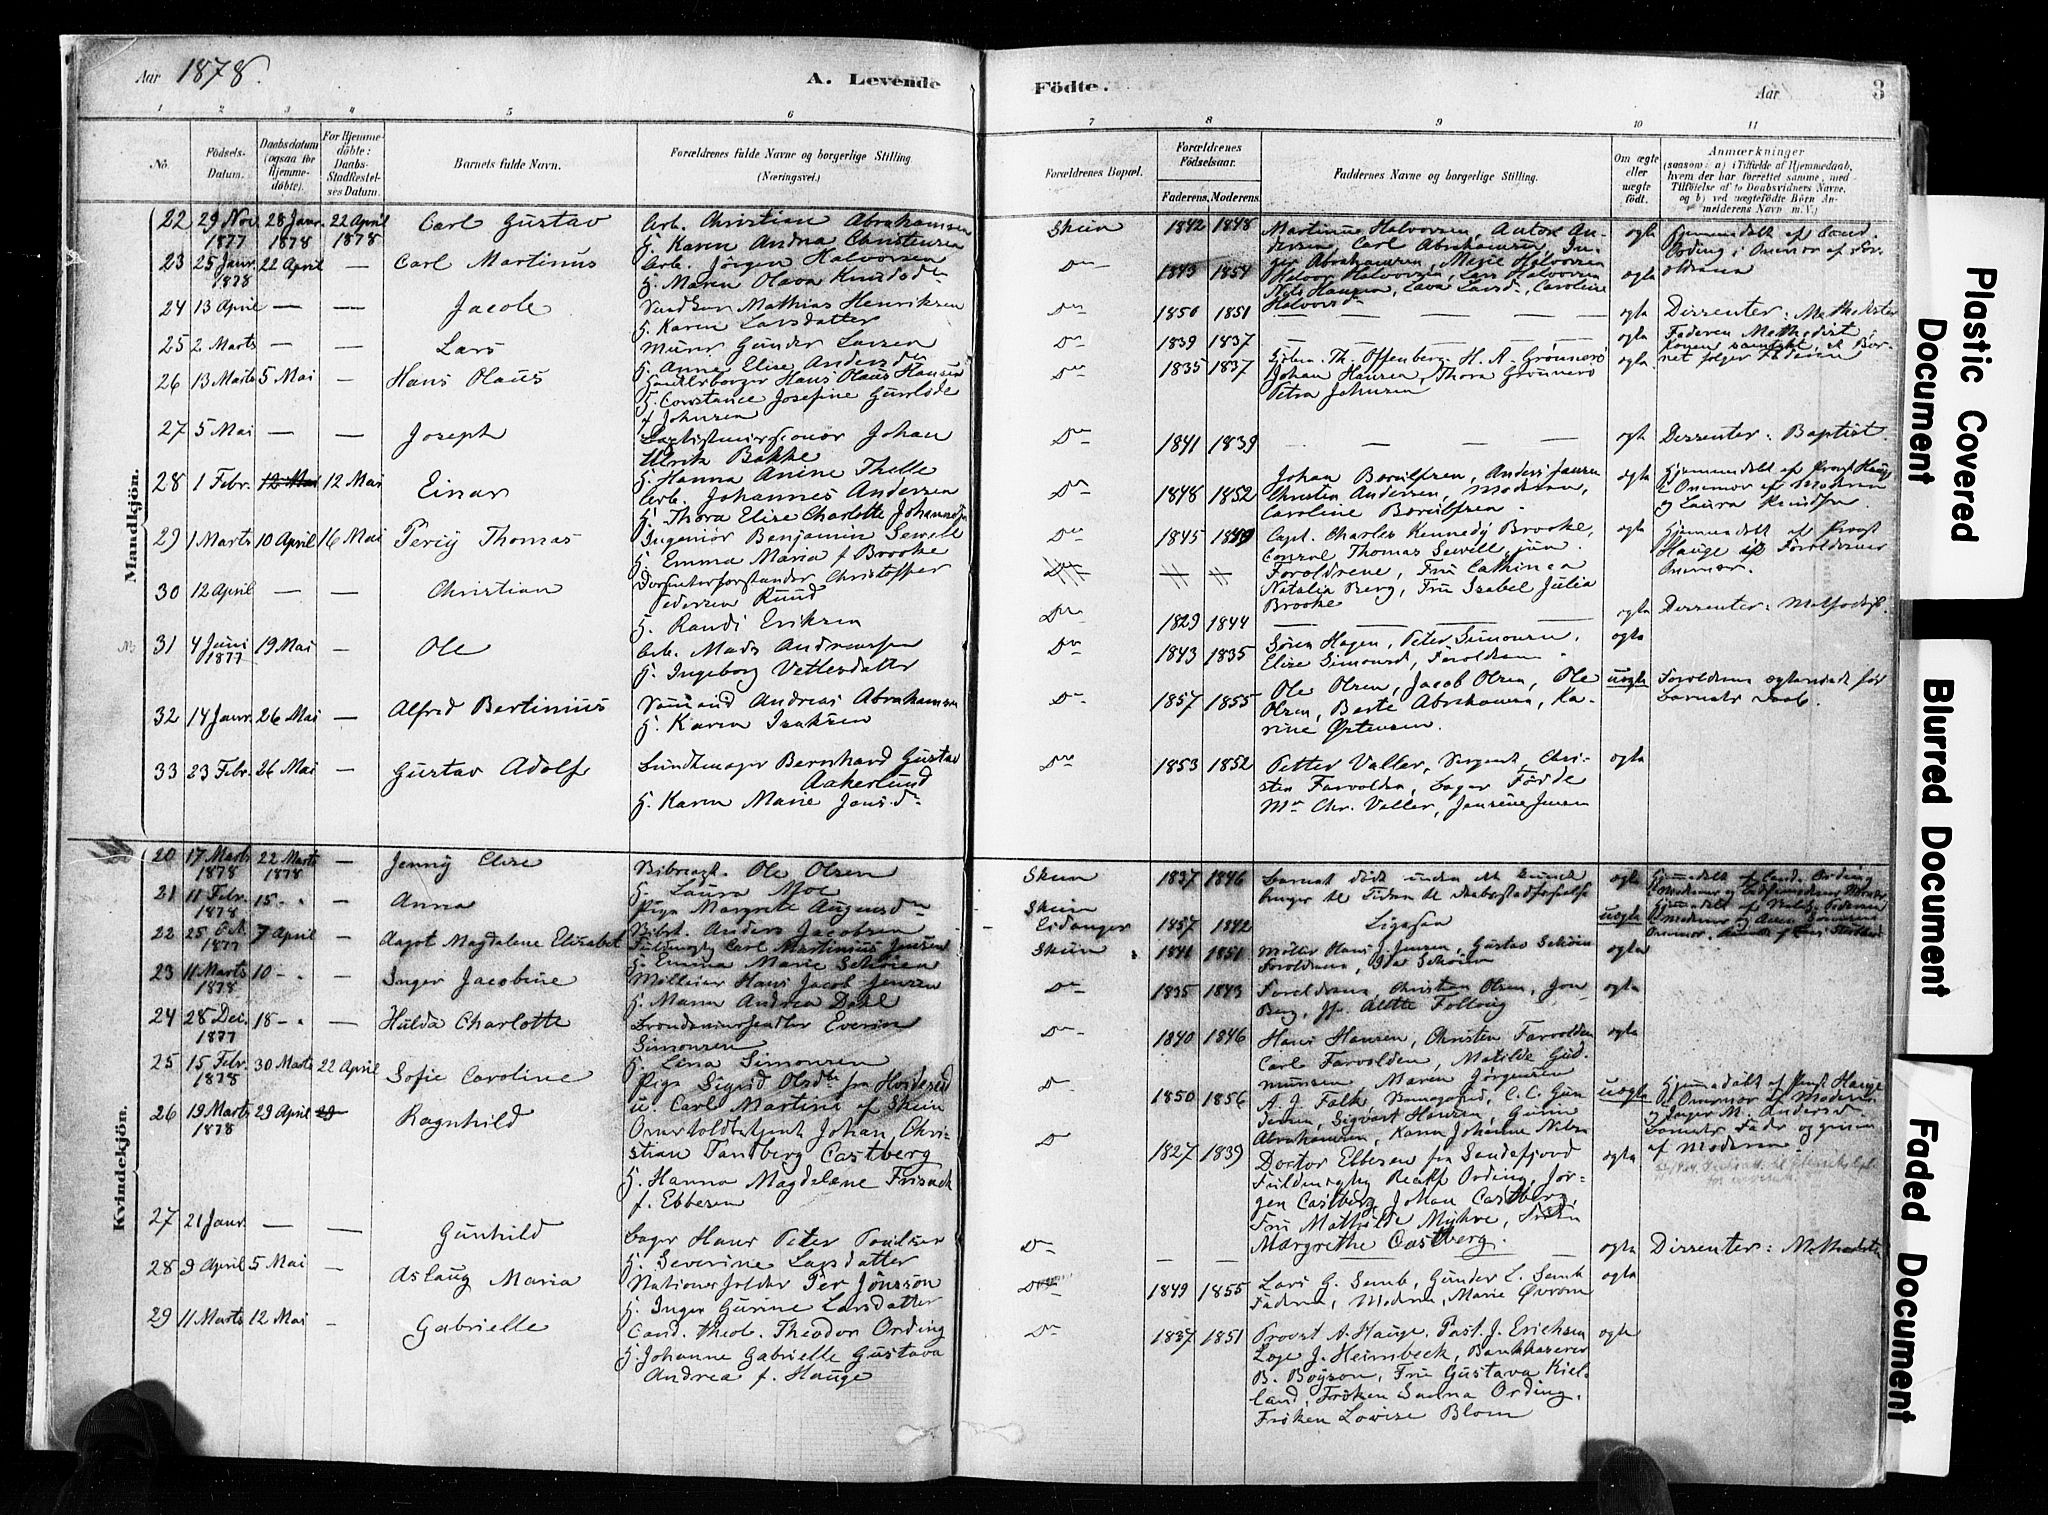 Aar 1878.
A. Levende
Födte.
Aar
3
1 2 3 4 5 6 7 8 9 10 11
No.
Födsels-
Datum.
Daabsdatum
(ogsaa for
Hjemme-
döbte).
For Hjemme-
döbte:
Daabs-
Stadfæstel-
ses Datum.
Barnets fulde Navn.
Forældrenes fulde Navne og borgerlige Stilling
(Næringsvei.)
Forældrenes Bopæl.
Forældrenes
Födselsaar.
Faderens. Moderens.
Faddernes Navne og borgerlige Stilling.
Om ægte
eller
uægte
födt.
Anmærkninger
(saasom: a) i Tilfælde af Hjemmedaab,
hvem der har forrettet samme, med
Tilföielse af to Daabsvidners Navne,
og b) ved uægtefödte Börn An-
melderens Navn m. V.)
Mandkjön.
22 29 Nov. 1877 28 Janr. 1878 22 April 1878 Carl Gustav
Arb. Christian Abrahamsen
H. Karen Andrea Christensen
Skien 1842 1848
Martinus Halvorsen, Anton An-
dersen, Carl Abrahamsen, In-
ger Abrahamsen, Marie Halvorsen
ægte
23 25 Janr. 1878 22 April — Carl Martinus
Arb. Jörgen Halvorsen
H. Maren Olava Knudsdr
Do 1843 1854
Halvor Halvorsen, Lars Halvorsen
Nils Hansen, Lava Larsd., Caroline
Halvorsdr
ægte
24 13 April — — Jacob
Mathias Henriksen
H. Karen Larsdatter
Do 1850 1851 — — — —
ægte Dissenter: Methodister
25 2 Marts — — Lars
Murer Gunder Larsen
H. Anne Elise Andersdr
Do 1839 1837
ægte Faderen Methodist
26 13 Marts 5 Mai — Hans Olaus
Hans Olaus Hansen
H. Constance Josefine Gunilde
f. Johnsen
Do 1835 1837
Th. Offenberg, H. A. Grønnerö
Johan Hansen, Thora Grønnerö
Petra Johnsen
ægte
27 5 Mai — — Joseph
Baptistmissionær Johan
Ulrik Bakke
H. Hanna Anine Thelle
Do 1841 1839 — — — —
ægte Dissenter: Baptist.
28 1 Febr. 12 Mai 12 Mai Einar
Arb. Johannes Andersen
H. Thora Elise Charlotte Johannesdr
Do 1848 1852
Johan Borulfsen, Anders Jansen
Christen Andersen, Moderen,
Caroline Borulfsen.
ægte Hjemmedøbt af Provst Hauge
29 1 Marts 10 April 16 Mai Percy Thomas
Ingeniør Benjamin Sewell
H. Emma Maria f. Brooke
Do 1845 1849
Capt. Charles Kennedy Brooke,
Consul Thomas Sewell jun.
Forældrene, Fru Cathinca
Natalia Berg, Fru Isabel Julia
Brooke
ægte Hjemmedøbt af Provst
Hauge
30 12 April — — Christian
Dissenterforstander Christoffer
Pedersen Ruud
H. Randi Eriksen
Do 1829 1844
ægte Dissenter: Methodist.
31 4 Juni 1877 19 Mai — Ole
Arb. Mads Andreassen
H. Ingeborg Vetlesdatter
Do 1843 1835
Søren Hagen, Peter Simonsen,
Elise Simonsd., Forældrene.
ægte
32 14 Janr. 26 Mai — Alfred Bertinius
Sømand Andreas Abrahamsen
H. Karen Isaksen
Do 1857 1855
Ole Olsen, Jacob Olsen, Ole
Olsen, Berte Abrahamsen, Ka-
rine Østensen.
uægte Forældrene ægteviede før
Barnets Daab.
33 23 Febr. 26 Mai — Gustav Adolf
Buntmager Bernhard Gustav
Aakerlund
H. Karen Marie Jensdr
Do 1853 1852
Petter Valler, Sergent, Chri-
sten Farvolden, Bager Förde
M. Chr. Valler, Jensine Jensen
ægte
Kvindekjön.
20 17 Marts 1878 22 Marts 1878 — Jenny Elise
Ole Olsen
H. Laura Moe
Skien 1837 1846
ægte
21 11 Febr. 1878 15 - " — Anna
Pige Margrete Augensdr
Anders Jacobsen
Skien
Eidanger 1857 1842
Ligesaa
uægte
22 25 Oct. 1877 7 April — Aagot Magdalene Elisabet
Fuldmægtig Carl Martinius Jensen
H. Emma Marie Schøien
Skien 1841 1851
Møller Hans J. Jensen, Gustav Schøien
Forældrene, Ida Schøien
ægte
23 11 Marts 1878 10 - " — Inger Jacobine
Hans Jacob Jensen
H. Maren Andrea Dahl
Do 1835 1843
Forældrene, Christen Olsen, Jon
Berg, Alette Follaug
ægte
24 28 Dec. 1877 18 - " — Hulda Charlotte
Everin
Simonsen
H. Lina Simonsen
Do 1840 1846
Hans Hansen, Christen Farvolden
Carl Farvolden, Matilde Gud-
munsen, Maren Jørgensen
ægte
25 15 Febr. 1878 30 Marts 22 April Sofie Caroline
Pige Sigrid Olsdtr fra Hviteseid
u. Carl Martins af Skien
Do 1850 1856
A. J. Falk, C. C. Gun
dersen, Sigvart Hansen, Gurine
Abrahamsen, Karen Johanne Nilsen
uægte Hjemmedøbt af Provst Hauge
26 19 Marts 1878 29 April 29 Ragnhild
Overtoldbetjent Johan Chri-
stian Tandberg Castberg
H. Hanna Magdelene Frisack
f. Ebbesen
Do 1827 1839
Doctor Ebbesen fra Sandefjord
Fuldmægtig Ording, Jør-
gen Castberg, Johan Castberg,
Fru Mathilde Myhre, Frøken
Margrethe Castberg.
ægte
27 21 Janr. — — Gunhild
Bager Hans Peter Poulsen
H. Severine Larsdatter
Do — — — —
ægte Dissenter: Methodister
28 9 April 5 Mai — Aslaug Maria
Per Jönsson
H. Inger Gurine Larsdatter
Do 1849 1855
Lars G. Semb, Gunder L. Semb
Faderen, Moderen, Marie Øvrom
ægte
29 11 Marts 12 Mai — Gabrielle
Cand. theol. Theodor Ording
H. Johanne Gabrielle Gustava
Andrea f. Hauge
Do 1837 1851
Provst A. Hauge, Past. J. Erichsen
Læge J. Heimbeck, Bankkasserer
B. Boyson, Fru Gustava Kiel-
land, Frøken Ording,
Frøken Lovise Blom
ægte
Plastic Covered
Document
Blurred Document
Faded Document